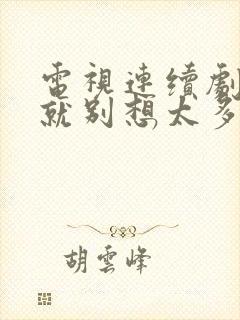 電視連續劇
就别想太多
胡雲峰